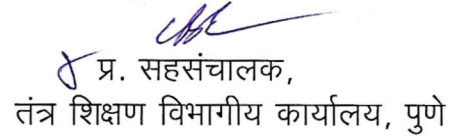 प्र. सहसंचालक,
तंत्र शिक्षण विभागीय कार्यालय, पुणे